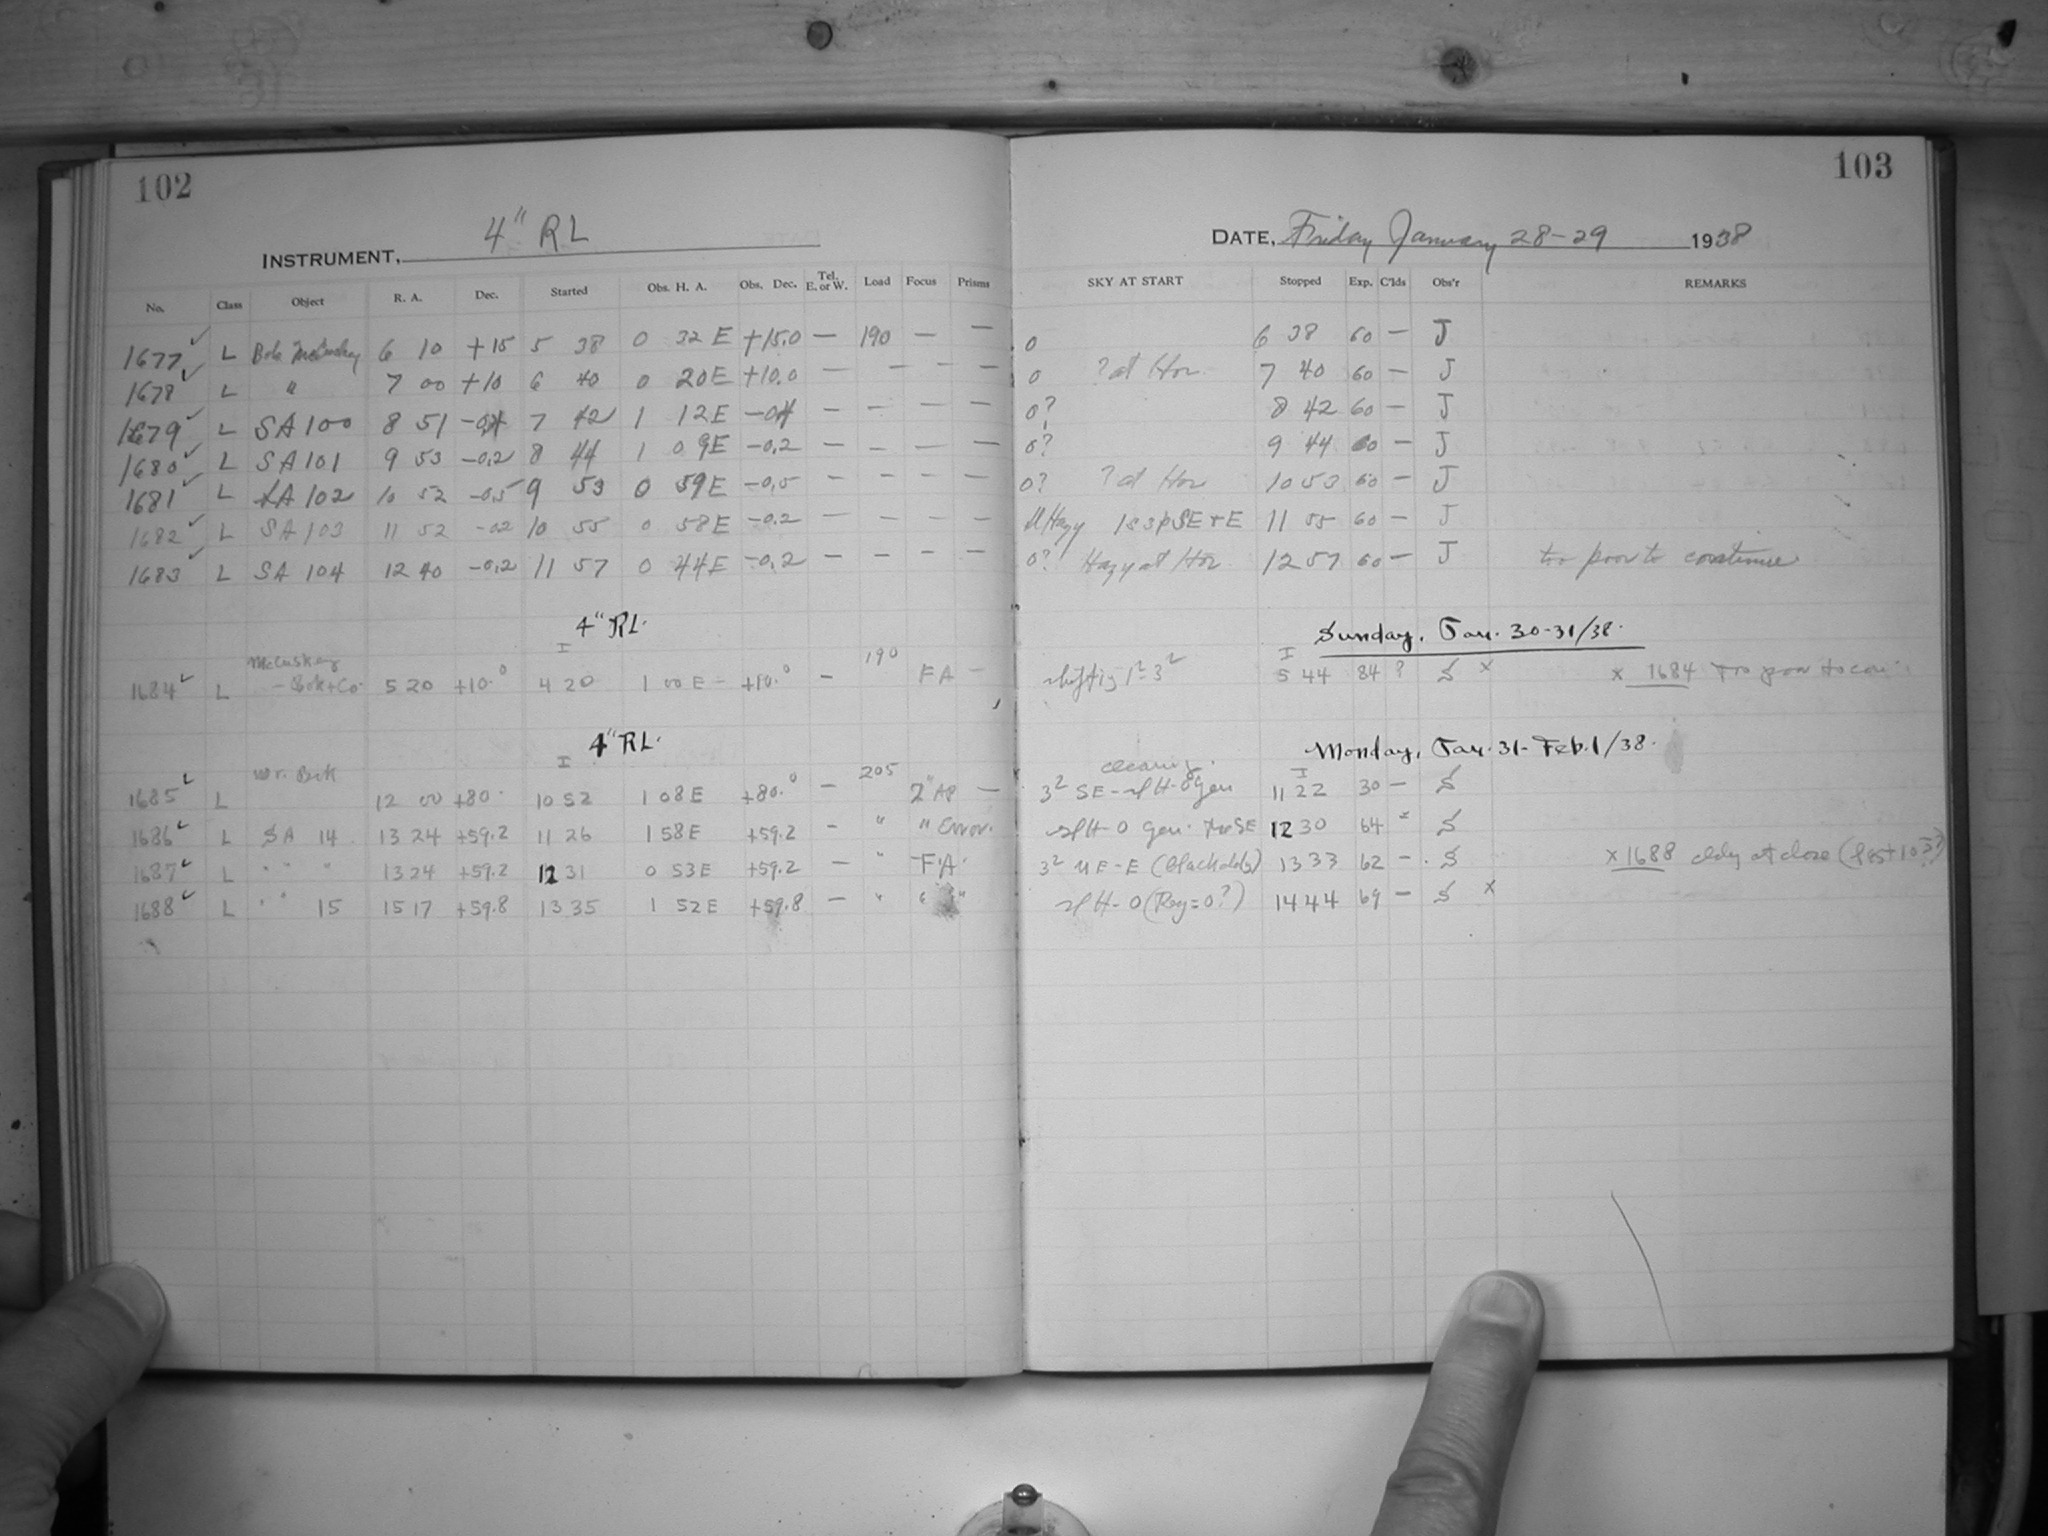 102
INSTRUMENT, 4" RL
No. Class Object R. A. Dec. Started Obs. H. A. Obs. Dec. Tel. E. or W. Load Focus Prisms
1677 L Bok McCuskey 6 10 +15 5 38 0 32 E +15.0 — 190 — —
1678 L " 7 00 +10 6 40 0 20E +10.0 — — — —
1679 L SA 100 8 51 7 42 1 12E — — — —
1680 L SA 101 9 53 -0.2 8 44 1 09E -0.2 — — — —
1681 L SA 102 10 52 -0.5 9 53 0 59E -0.5 — — — —
1682 L SA 103 11 52 -02 10 55 0 58E -0.2 — — — —
1683 L SA 104 12 40 -0.2 11 57 0 44E -0.2 — — — —
4" RL.
McCuskey I 190
1684 L -Bok+Co. 5 20 +10.° 4 20 1 00 E +10.° — FA —
4" RL.
Mr. Bok I 205
1685 L 12 00 +80. 10 52 1 08 E +80.° — —
1686 L SA 14 13 24 +59.2 11 26 1 58E +59.2 - " " Error.
1687 L " " " 13 24 +59.2 12 31 0 53E +59.2 — " FA.
1688 L " " 15 15 17 +59.8 13 35 1 52E +59.8 — " " "
103
DATE, Friday January 28-29 1938
SKY AT START Stopped Exp. C'lds Obs'r REMARKS
0 6 38 60 — J
0 ? at Hor. 7 40 60 — J
0? 8 42 60 — J
0? 9 44 60 — J
0? ? at Hor 10 53 60 — J
Hazy SE + E 11 55 60 — J
0? Hazy at Hor. 12 57 60 — J too poor to continue
Sunday, Jan. 30-31/38.
I
shifting 1²-3² 5 44 84 ? S x x 1684 Too poor to con
Monday, Jan. 31- Feb. 1/38.
clearing. I
3² SE- slH-0 gen 11 22 30 — S
slH-0 gen. 12 30 64 S
3² NE-E 13 33 62 — S x 1688 cldy at close
slH-0 (Reg=0?) 14 44 69 — S x